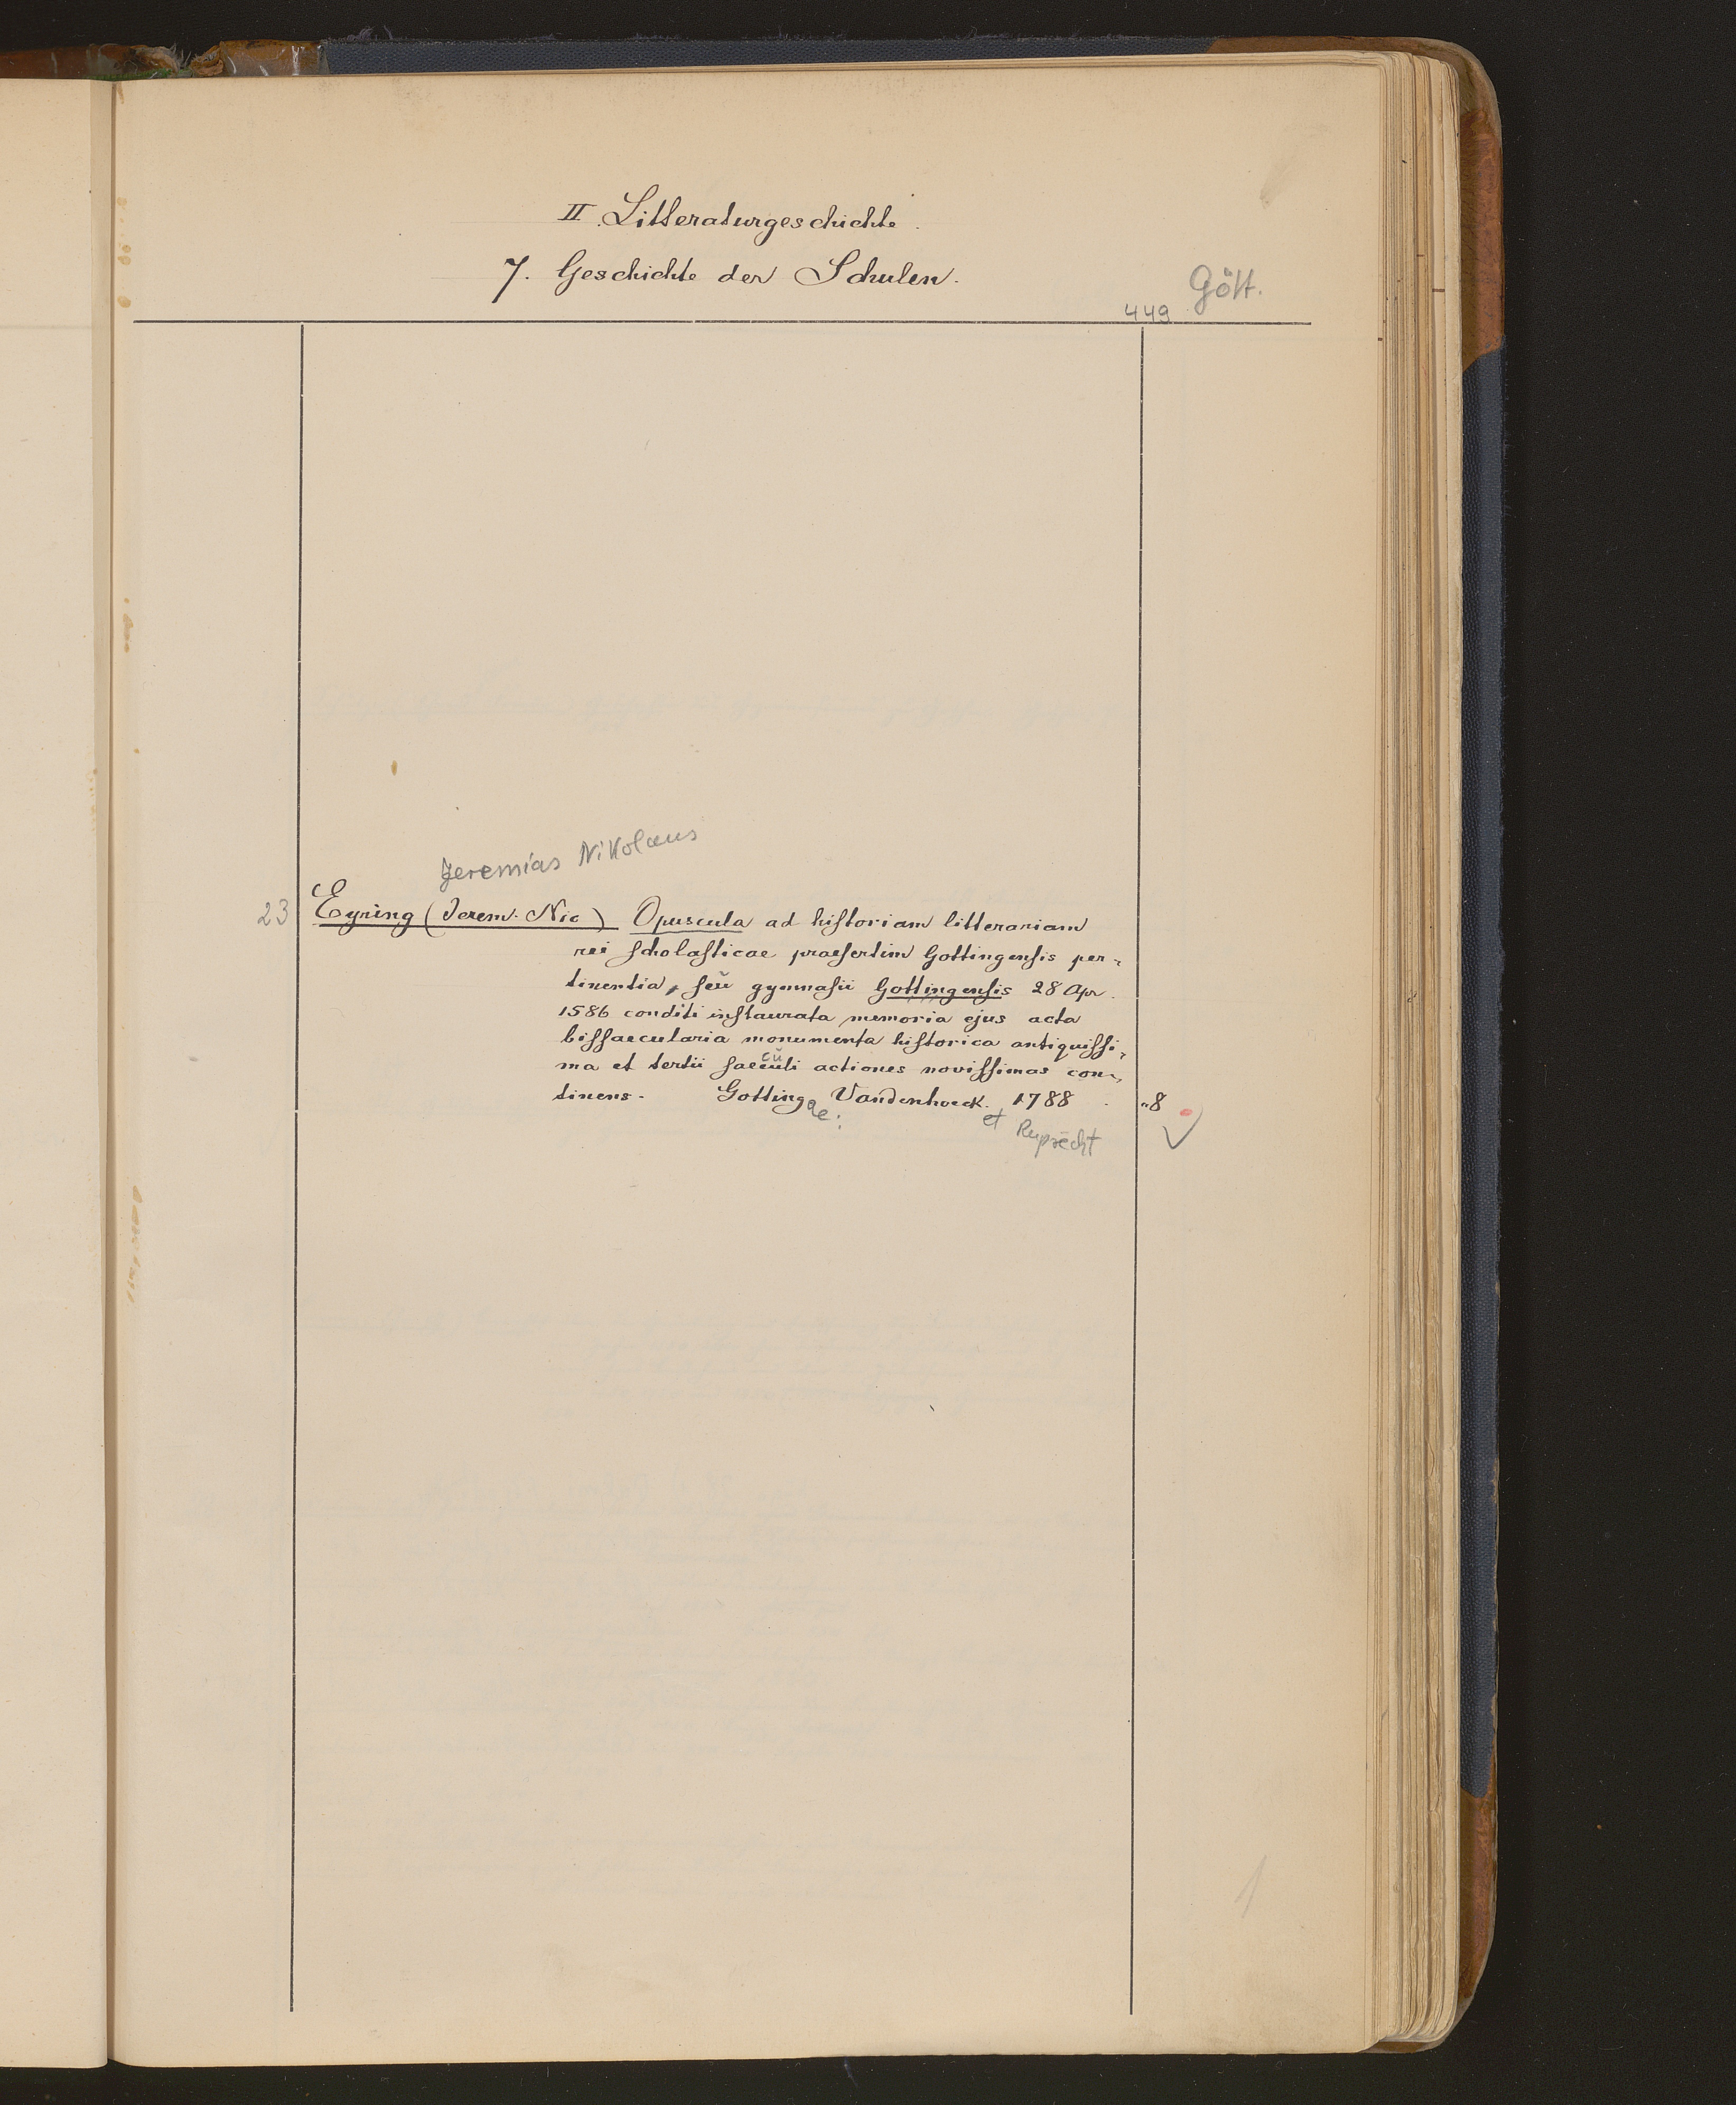 II. Litteraturgeschichte.
7. Geschichte der Schulen.
449 Gött.
Jeremias Nikolaus
23 Eyring (Jerem. Nic) Opuscula ad hiſtoriam litterariam
rei ſcholaſticae praeſertim Gottingenſis per-
tinentia, ſeu gymnaſii Gottingenſis 28 Apr.
1586 conditi inſtaurata memoria ejus acta
biſſaecularia monumenta hiſtorica antiquiſſi-
cu
ma et tertii ſaeculi actiones noviſſimas con-
tinens. Gotting Vandenhoeck. 1788. "8
ae: et Ruprecht
1